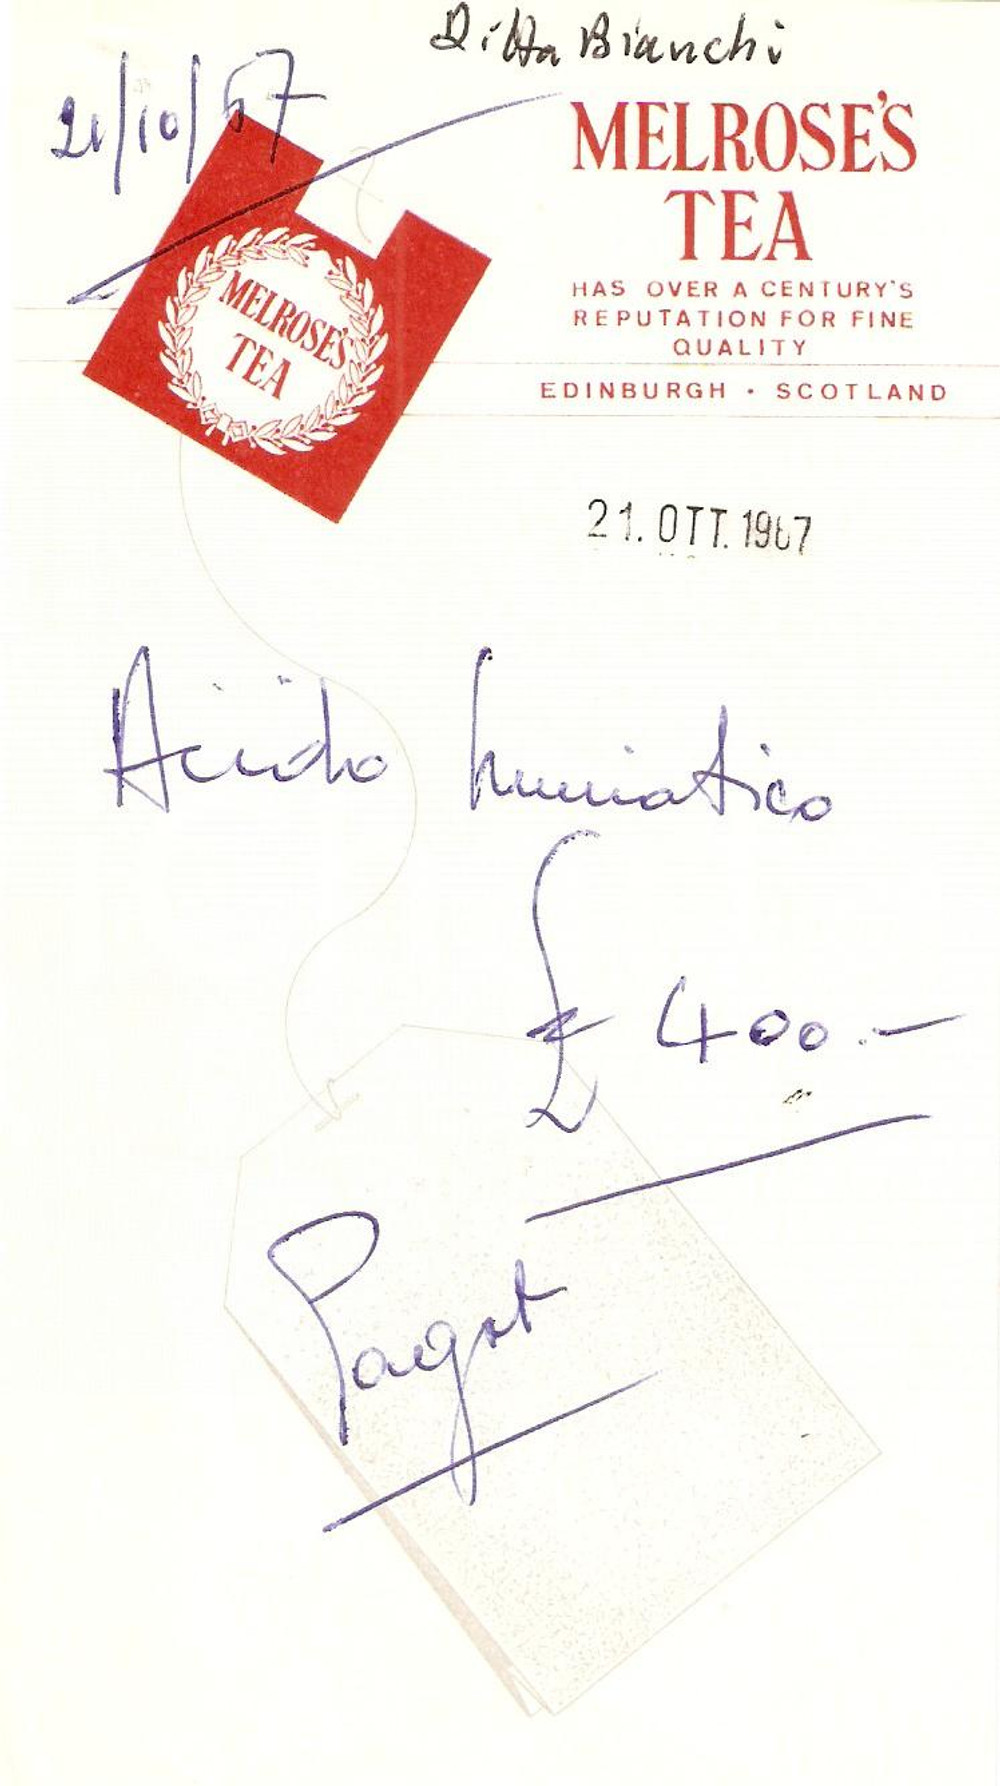 Ditta Bianchi
21/10/67
MELROSE'S
TEA
HAS OVER A CENTURY'S
REPUTATION FOR FINE
QUALITY
EDINBURGH · SCOTLAND
MELROSE'S
TEA
21. OTT. 1967
Acido muriatico
£ 400.—
Pagat